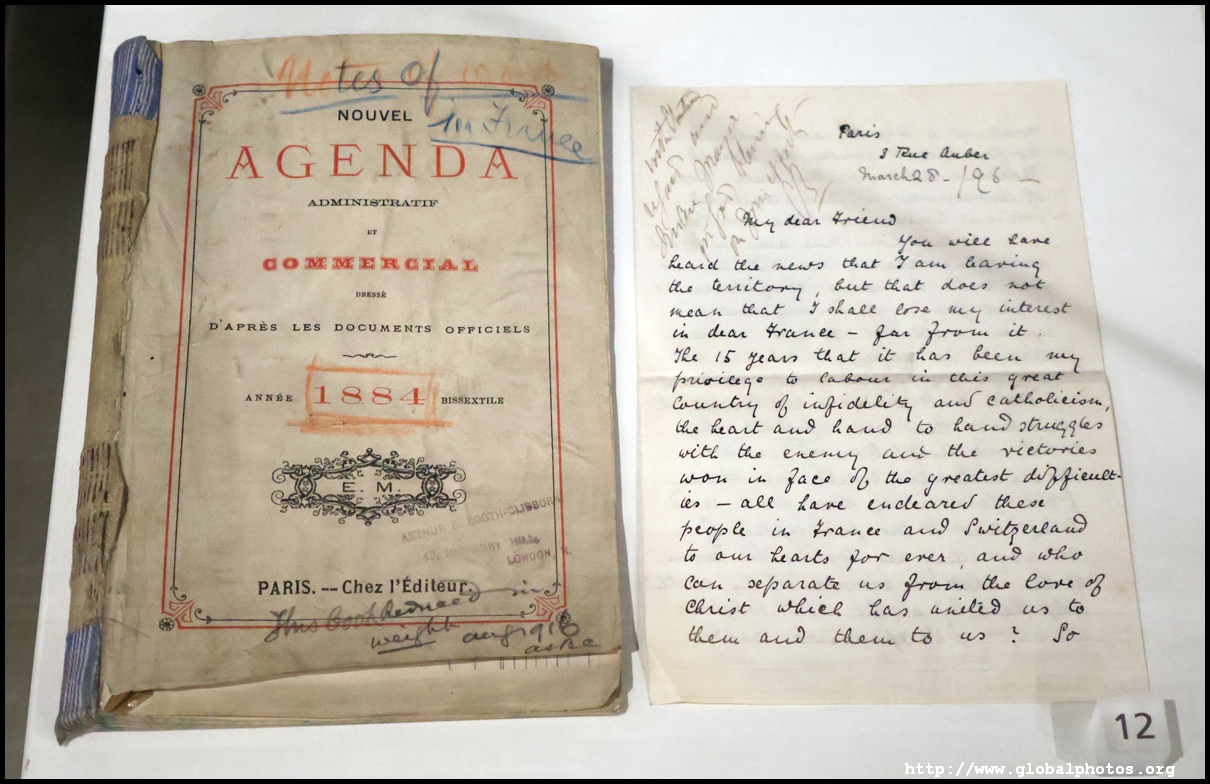 Notes of
in France
NOUVEL
AGENDA
ADMINISTRATIF
ET
COMMERCIAL
DRESSÉ
D'APRÈS LES DOCUMENTS OFFICIELS
ANNÉE 1884 BISSEXTILE
E. M.
ARTHUR S. BOOTH-CLIBBORN
LONDON, N.
PARIS. -- Chez l'Éditeur.
This book Reduced in
weight aug 1916
asbc
Paris
3 Rue Auber
March 28 - /96 —
My dear Friend
You will have
heard the news that I am leaving
the territory, but that does not
mean that I shall lose my interest
in dear France - far from it.
The 15 years that it has been my
privilege to labour in this great
country of infidelity and catholicism,
the heart and hand to hand struggles
with the enemy and the victories
won in face of the greatest difficult-
ies - all have endeared these
people in France and Switzerland
to our hearts for ever, and who
can separate us from the love of
Christ which has united us to
them and them to us? So
12
http://www.globalphotos.org